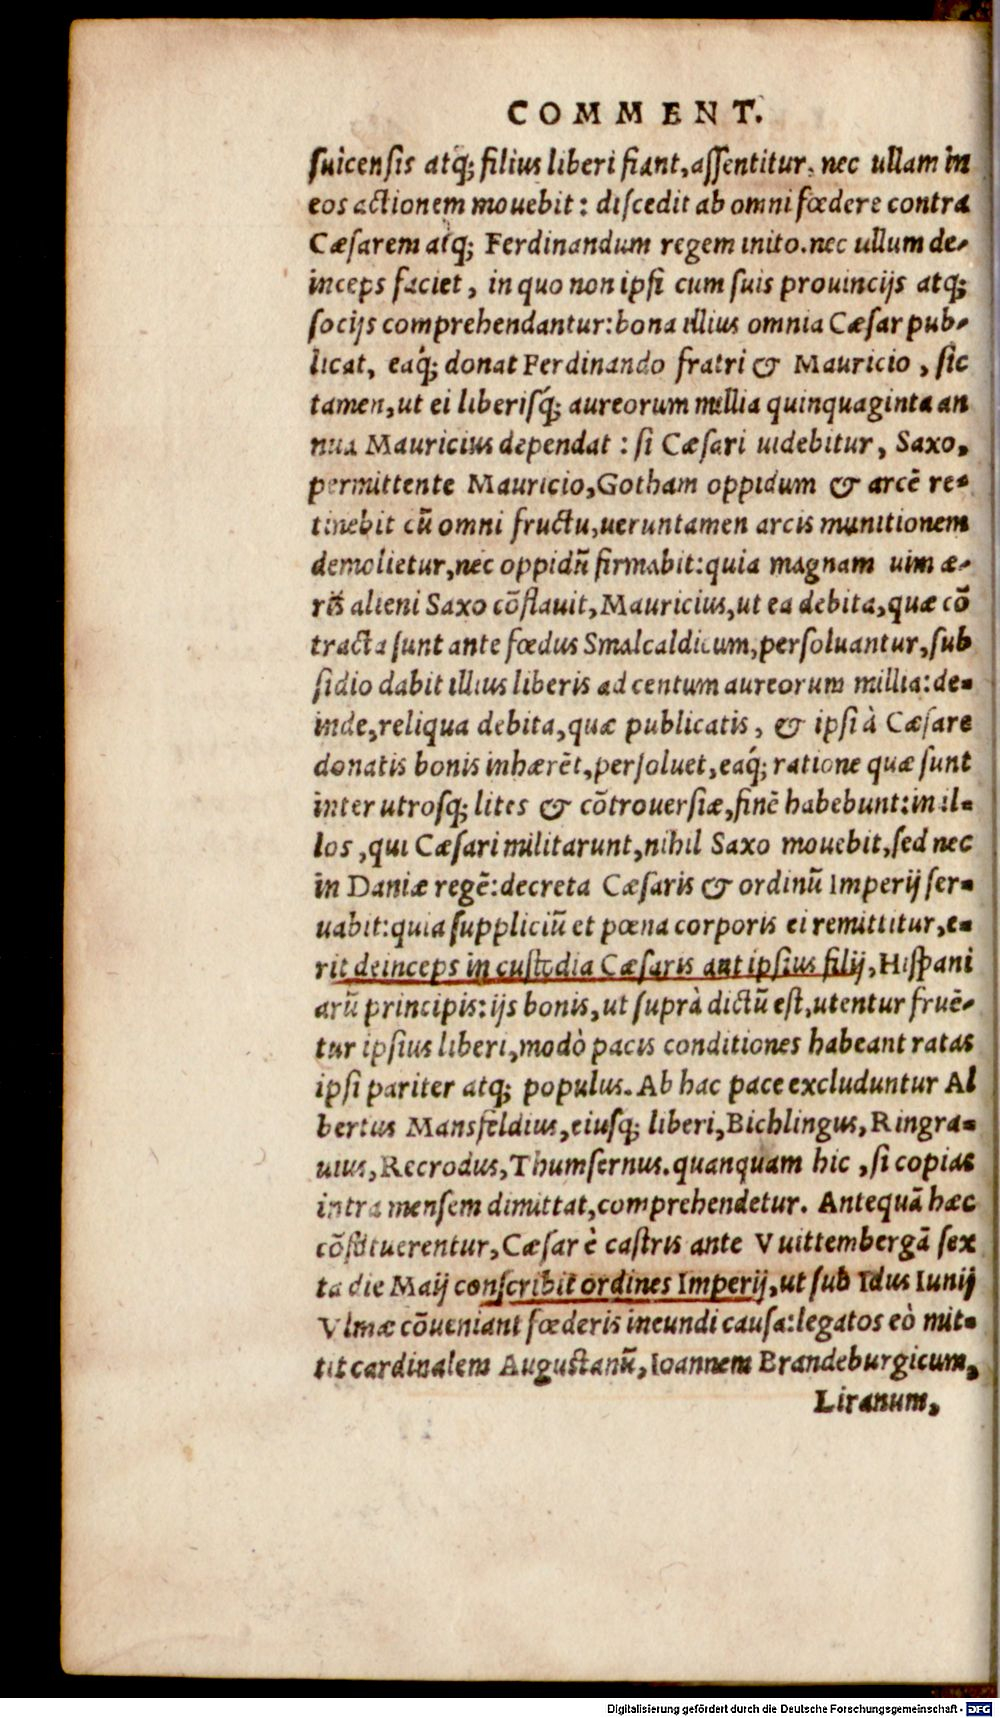 COMMENT.
suicensis atq; filius liberi fiant, assentitur. nec ullam in
eos actionem mouebit: discedit ab omni fœdere contra
Cæsarem atq; Ferdinandum regem inito. nec ullum de-
inceps faciet, in quo non ipsi cum suis prouincijs atq;
socijs comprehendantur: bona illius omnia Cæsar pub-
licat, eaq́; donat Ferdinando fratri & Mauricio, sic
tamen, ut ei liberisq́; aureorum millia quinquaginta an
nua Mauricius dependat: si Cæsari uidebitur, Saxo,
permittente Mauricio, Gotham oppidum & arcē re-
tinebit cū omni fructu, ueruntamen arcis munitionem
demolietur, nec oppidū firmabit: quia magnam uim æ-
ris alieni Saxo cōflauit, Mauricius, ut ea debita, quæ cō
tracta sunt ante fœdus Smalcaldicum, persoluantur, sub
sidio dabit illius liberis ad centum aureorum millia: de-
inde, reliqua debita, quæ publicatis, & ipsi à Cæsare
donatis bonis inhærēt, persoluet, eaq́; ratione quæ sunt
inter utrosq; lites & cōtrouersiæ, finē habebunt: in il-
los, qui Cæsari militarunt, nihil Saxo mouebit, sed nec
in Daniæ regē: decreta Cæsaris & ordinū Imperij ser-
uabit: quia suppliciū et pœna corporis ei remittitur, e-
rit deinceps in custodia Cæsaris aut ipsius filij, Hispani
arū principis: ijs bonis, ut suprà dictū est, utentur fruē-
tur ipsius liberi, modò pacis conditiones habeant ratas
ipsi pariter atq; populus. Ab hac pace excluduntur Al
bertus Mansfeldius, eiusq; liberi, Bichlingus, Ringra-
uius, Recrodus, Thumsernus. quanquam hic, si copias
intra mensem dimittat, comprehendetur. Antequā hæc
cōstituerentur, Cæsar è castris ante Vuittembergā sex
ta die Maij conscribit ordines Imperij, ut sub Idus Iunij
Vlmæ cōueniant fœderis ineundi causa: legatos eò mit-
tit cardinalem Augustanū, Ioannem Brandeburgicum,
Liranum,
Digitalisierung gefördert durch die Deutsche Forschungsgemeinschaft - DFG